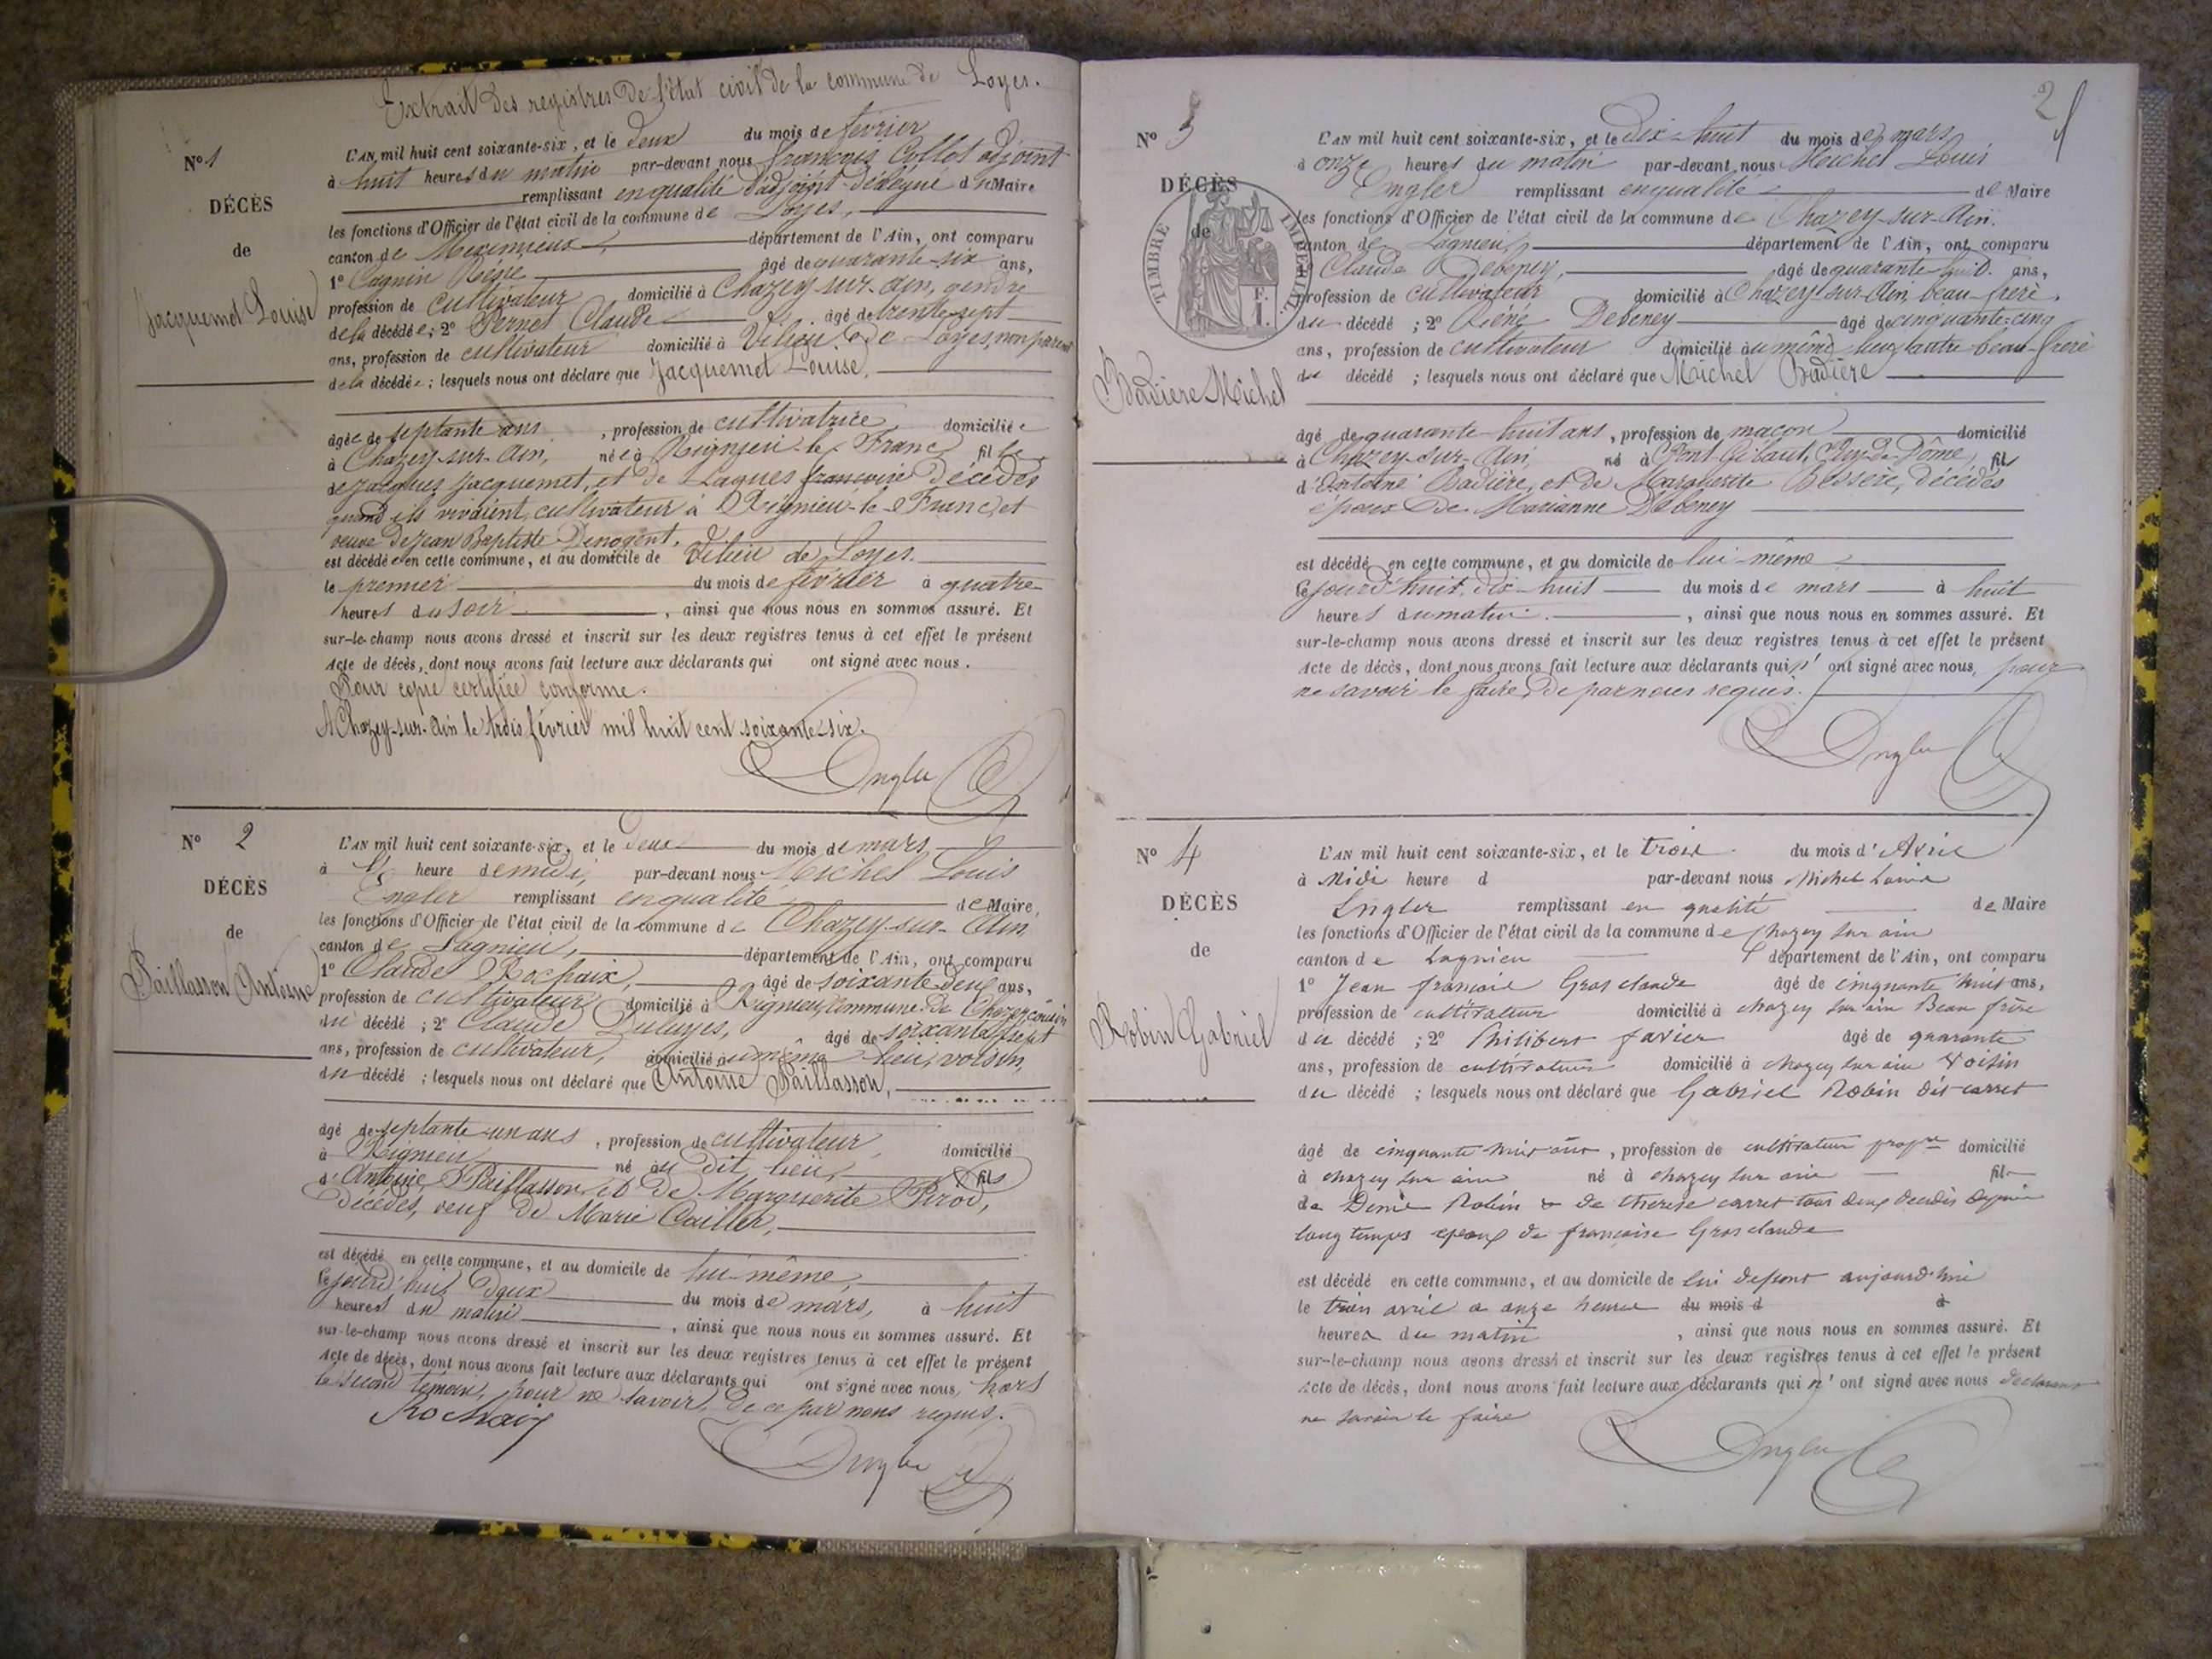 Extrait des registres de l'état civil de la commune de Loyes.
N° 1
DÉCÈS
de
Jacquemet Louise
L'AN mil huit cent soixante-six, et le deux du mois de février
à huit heures du matin par-devant nous François Collet adjoint
remplissant en qualité d'adjoint délégué du Maire
les fonctions d'Officier de l'état civil de la commune de Loyes,
canton de Meximieux, département de l'Ain, ont comparu
1° Cagnin René âgé de quarante-six ans,
profession de cultivateur domicilié à Chazey-sur-Ain, gendre
de la décédée; 2° Pernet Claude âgé de trente-sept
ans, profession de cultivateur domicilié à Vilieu de Loyes, non parent
de la décédée; lesquels nous ont déclaré que Jacquemet Louise,
âgée de septante ans, profession de cultivatrice, domiciliée
à Chazey-sur-Ain, née à Rignieu-le-Franc fille
de Jacques Jacquemet, et de Laques françoise décédés
quand ils vivaient, cultivateur à Rignieu-le-Franc, et
veuve de Jean Baptiste Denogent,
est décédée en cette commune, et au domicile de Vilieu de Loyes.
le premier du mois de février à quatre
heures du soir, ainsi que nous nous en sommes assuré. Et
sur-le-champ nous avons dressé et inscrit sur les deux registres tenus à cet effet le présent
Acte de décès, dont nous avons fait lecture aux déclarants qui ont signé avec nous.
Pour copie certifiée conforme.
A Chazey-sur-Ain le trois février mil huit cent soixante-six.
Engler
N° 2
DÉCÈS
de
Paillasson Antoine
L'AN mil huit cent soixante-six, et le deux du mois de mars
à heure de midi, par-devant nous Michel Louis
Engler remplissant en qualité de Maire,
les fonctions d'Officier de l'état civil de la commune de Chazey-sur-Ain
canton de Lagnieu, département de l'Ain, ont comparu
1° Claude Rochaix, âgé de soixante deux ans,
profession de cultivateur domicilié à Rignieu, commune de Chazey, cousin
du décédé; 2° Claude Duluyes, âgé de soixante sept
ans, profession de cultivateur, domicilié au même lieu, voisin,
du décédé; lesquels nous ont déclaré que Antoine Paillasson,
âgé de septante-un ans, profession de cultivateur, domicilié
à Rignieu né au dit lieu, fils
d'Antoine Paillasson, et de Marguerite Pirod,
décédés, veuf de Marie Cailler,
est décédé en cette commune, et au domicile de lui-même,
le jourd'hui deux du mois de mars, à huit
heures du matin, ainsi que nous nous en sommes assuré. Et
sur-le-champ nous avons dressé et inscrit sur les deux registres tenus à cet effet le présent
Acte de décès, dont nous avons fait lecture aux déclarants qui ont signé avec nous, hors
le second témoin, pour ne savoir, de ce par nous requis.
Rochaix
Engler
2
N° 3
DÉCÈS
de
TIMBRE IMPÉRIAL
Badière Michel
L'AN mil huit cent soixante-six, et le dix-huit du mois de mars
à onze heures du matin par-devant nous Michel Louis
Engler remplissant en qualité de Maire
les fonctions d'Officier de l'état civil de la commune de Chazey-sur-Ain.
canton de Lagnieu, département de l'Ain, ont comparu
1° Claude Debeney, âgé de quarante huit ans,
profession de cultivateur domicilié à Chazey-sur-Ain, beau-frère,
du décédé; 2° Réné Debeney âgé de cinquante-cinq
ans, profession de cultivateur domicilié au même lieu, l'autre beau-frère
du décédé; lesquels nous ont déclaré que Michel Badière
âgé de quarante-huit ans, profession de maçon domicilié
à Chazey-sur-Ain, né à Pont Gibaut, Puy-de-Dôme, fils
d'Antoine Badière, et de Marguerite Bessère, décédés
époux de Marianne Debeney
est décédé en cette commune, et au domicile de lui-même
le jourd'huit dix-huit du mois de mars à huit
heures du matin, ainsi que nous nous en sommes assuré. Et
sur-le-champ nous avons dressé et inscrit sur les deux registres tenus à cet effet le présent
Acte de décès, dont nous avons fait lecture aux déclarants qui n'ont signé avec nous, pour
ne savoir le faire, de par nous requis.
Engler
N° 4
DÉCÈS
de
Robin Gabriel
L'AN mil huit cent soixante-six, et le trois du mois d'Avril
à Midi heure d par-devant nous Michel Louis
Engler remplissant en qualité de Maire
les fonctions d'Officier de l'état civil de la commune de chazey sur ain
canton de Lagnieu département de l'Ain, ont comparu
1° Jean françois Grosclaude âgé de cinquante huit ans,
profession de cultivateur domicilié à chazey sur ain Beau frère
du décédé; 2° Philibert favier âgé de quarante
ans, profession de cultivateur domicilié à chazey sur ain voisin
du décédé; lesquels nous ont déclaré que Gabriel Robin dit carret
âgé de cinquante huit ans, profession de cultivateur propre domicilié
à chazey sur ain né à chazey sur ain fils
de Denis Robin & de therese carret tous deux décédés depuis
long temps epoux de françoise Grosclaude
est décédé en cette commune, et au domicile de lui defunt aujourd'hui
le trois avril a onze heure du mois d à
heures du matin, ainsi que nous nous en sommes assuré. Et
sur-le-champ nous avons dressé et inscrit sur les deux registres tenus à cet effet le présent
Acte de décès, dont nous avons fait lecture aux déclarants qui n'ont signé avec nous declarant
ne savoir le faire
Engler